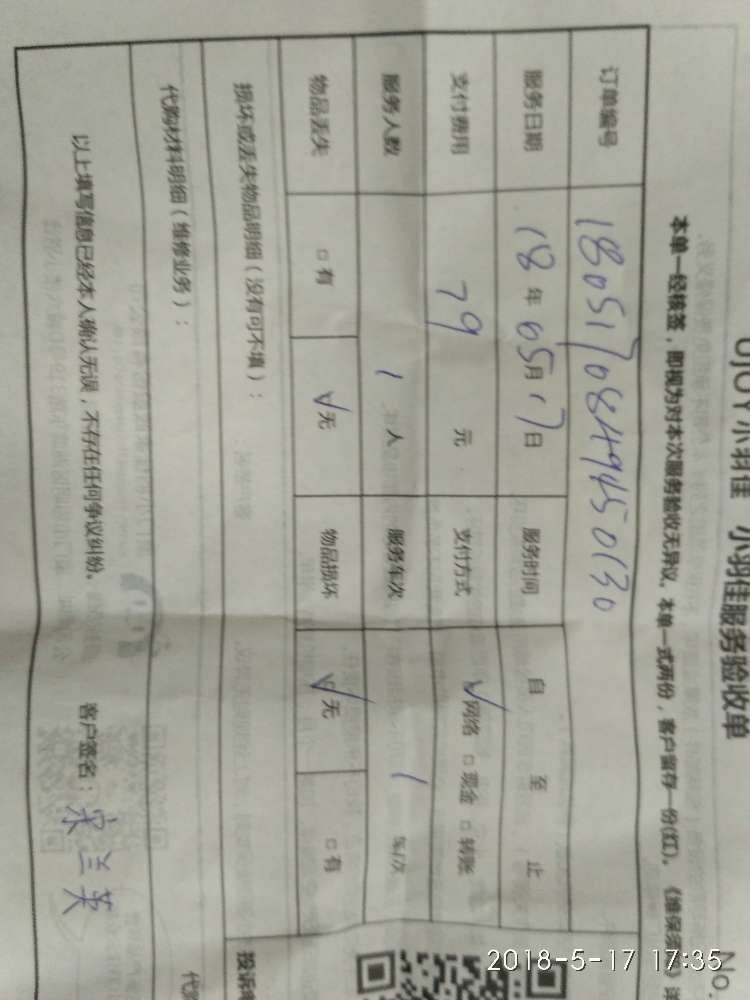 UJOY小羽佳 小羽佳服务验收单
No.
本单一经核签，即视为对本次服务验收无异议。本单一式两份，客户留存一份(红)。《维保
订单编号 1805170849450130
服务日期 18年05月17日 服务时间 自 至 止
支付费用 79 元 支付方式 √网络 □现金 □转账
服务人数 1 人 服务车次 1 车/次
物品丢失 □有 √无 物品损坏 √无 □有
损坏或丢失物品明细（没有可不填）：
代购材料明细（维修业务）：
以上填写信息已经本人确认无误，不存在任何争议纠纷。 客户签名：宋兰英
投诉
代
2018-5-17 17:35